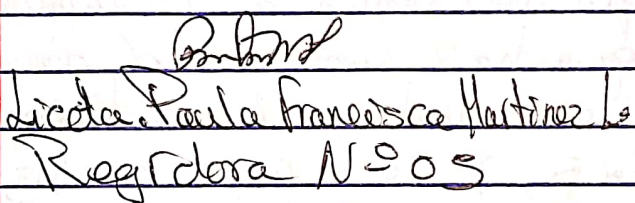 Licda. Paula Francisca Martinez L.
Regidora Nº 05